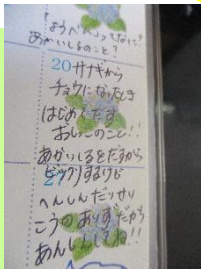 ようべんってなに？
あかいしるのこと？
20 サナギから
チョウになったとき
はじめてだす
おしっこのこと！！
あかいしるをだすから
27 ビックリするけど
へんしんだいせい
こうのありすだから
あんしんしてね！！